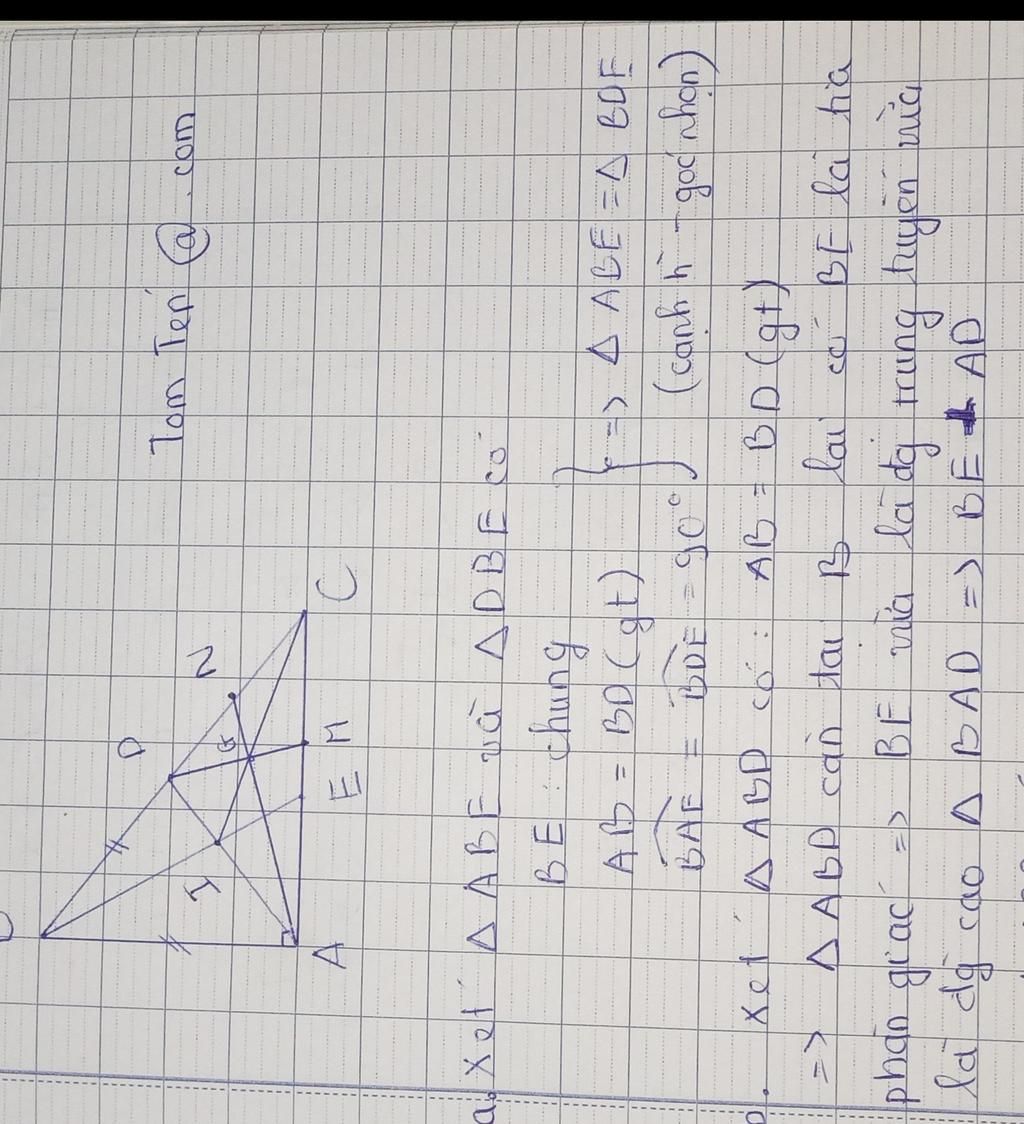 Tom Tep @ . com
D
N
G
I
A
E
M
C
a. Xét Δ ABE và Δ DBE có
BE : chung
AB = BD (gt) } => Δ ABE = Δ BDE
BAE = BDE = 90° (cạnh h - góc nhọn)
xét Δ ABD có : AB = BD (gt)
=> Δ ABD cân tại B lại có BE là tia
phân giác => BE vừa là đg trung tuyến vừa
là đg cao Δ BAD => BE ⊥ AD